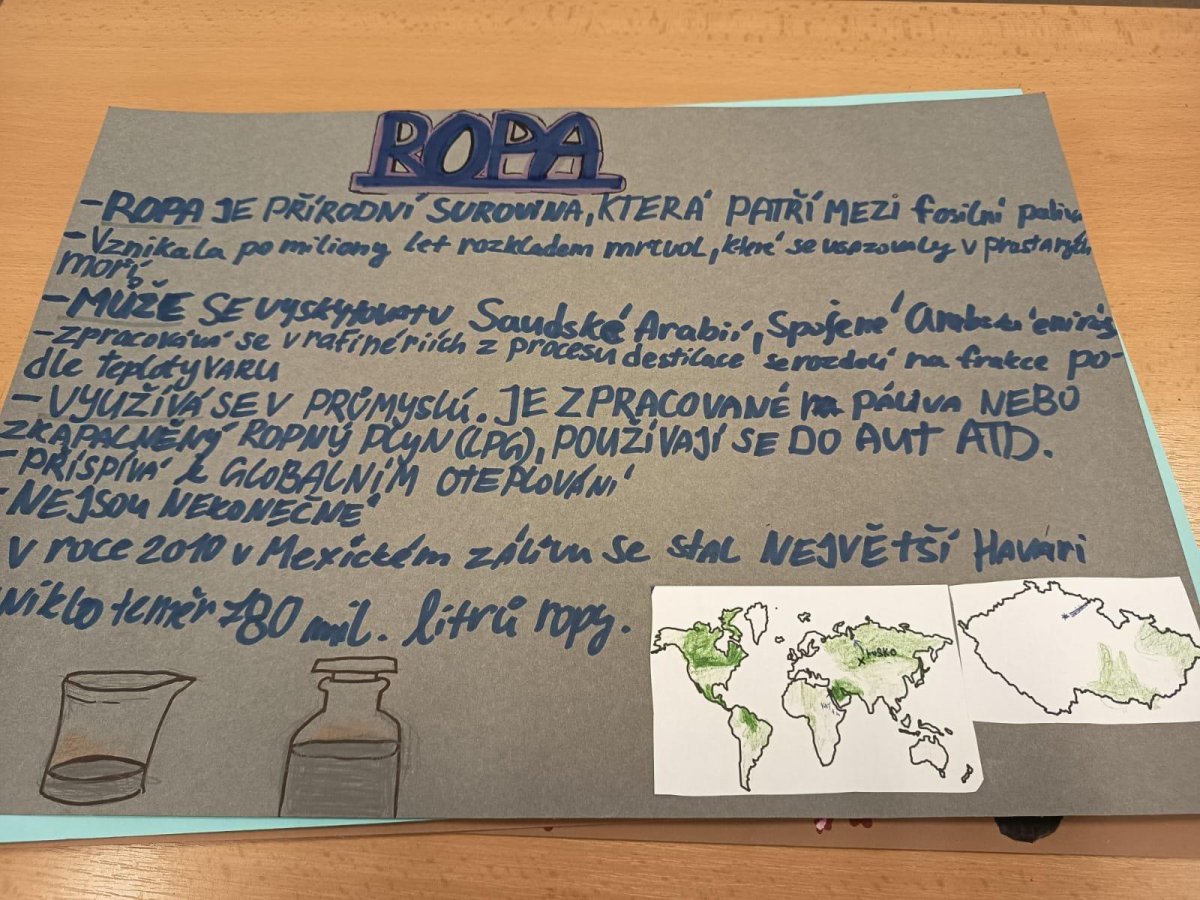 ROPA
-ROPA JE PŘÍRODNÍ SUROVINA, KTERÁ PATŘÍ MEZI fosilní paliva
-Vznikala po miliony let rozkladem mrtvol, které se usazovaly v prastarých
moří
-MŮŽE SE vyskytovat v Saudské Arabii, Spojené Arabské emiráty
-zpracování se v rafinériích z procesu destilace se rozdělí na frakce po-
dle teploty VARU
-VYUŽÍVÁ SE V PRŮMYSLU. JE ZPRACOVANÉ PALIVA NEBO
ZKAPALNĚNÝ ROPNÝ PLYN (LPG), POUŽÍVAJÍ SE DO AUT ATD.
-PŘISPÍVÁ k GLOBALNÍM OTEPLOVÁNÍ
-NEJSOU NEKONEČNÉ
V roce 2010 v Mexickém zálivu se stal NEJVĚTŠÍ Havári
uniklo teměř 780 mil. litrů ropy.
rusko